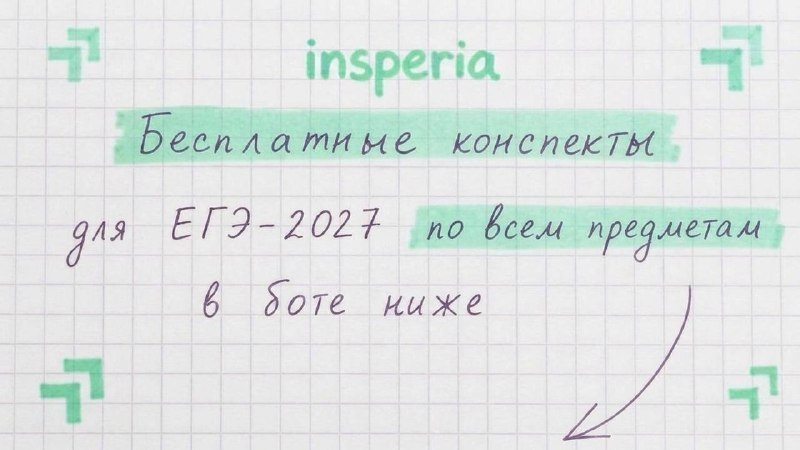 insperia
Бесплатные конспекты
для ЕГЭ-2027 по всем предметам
в боте ниже